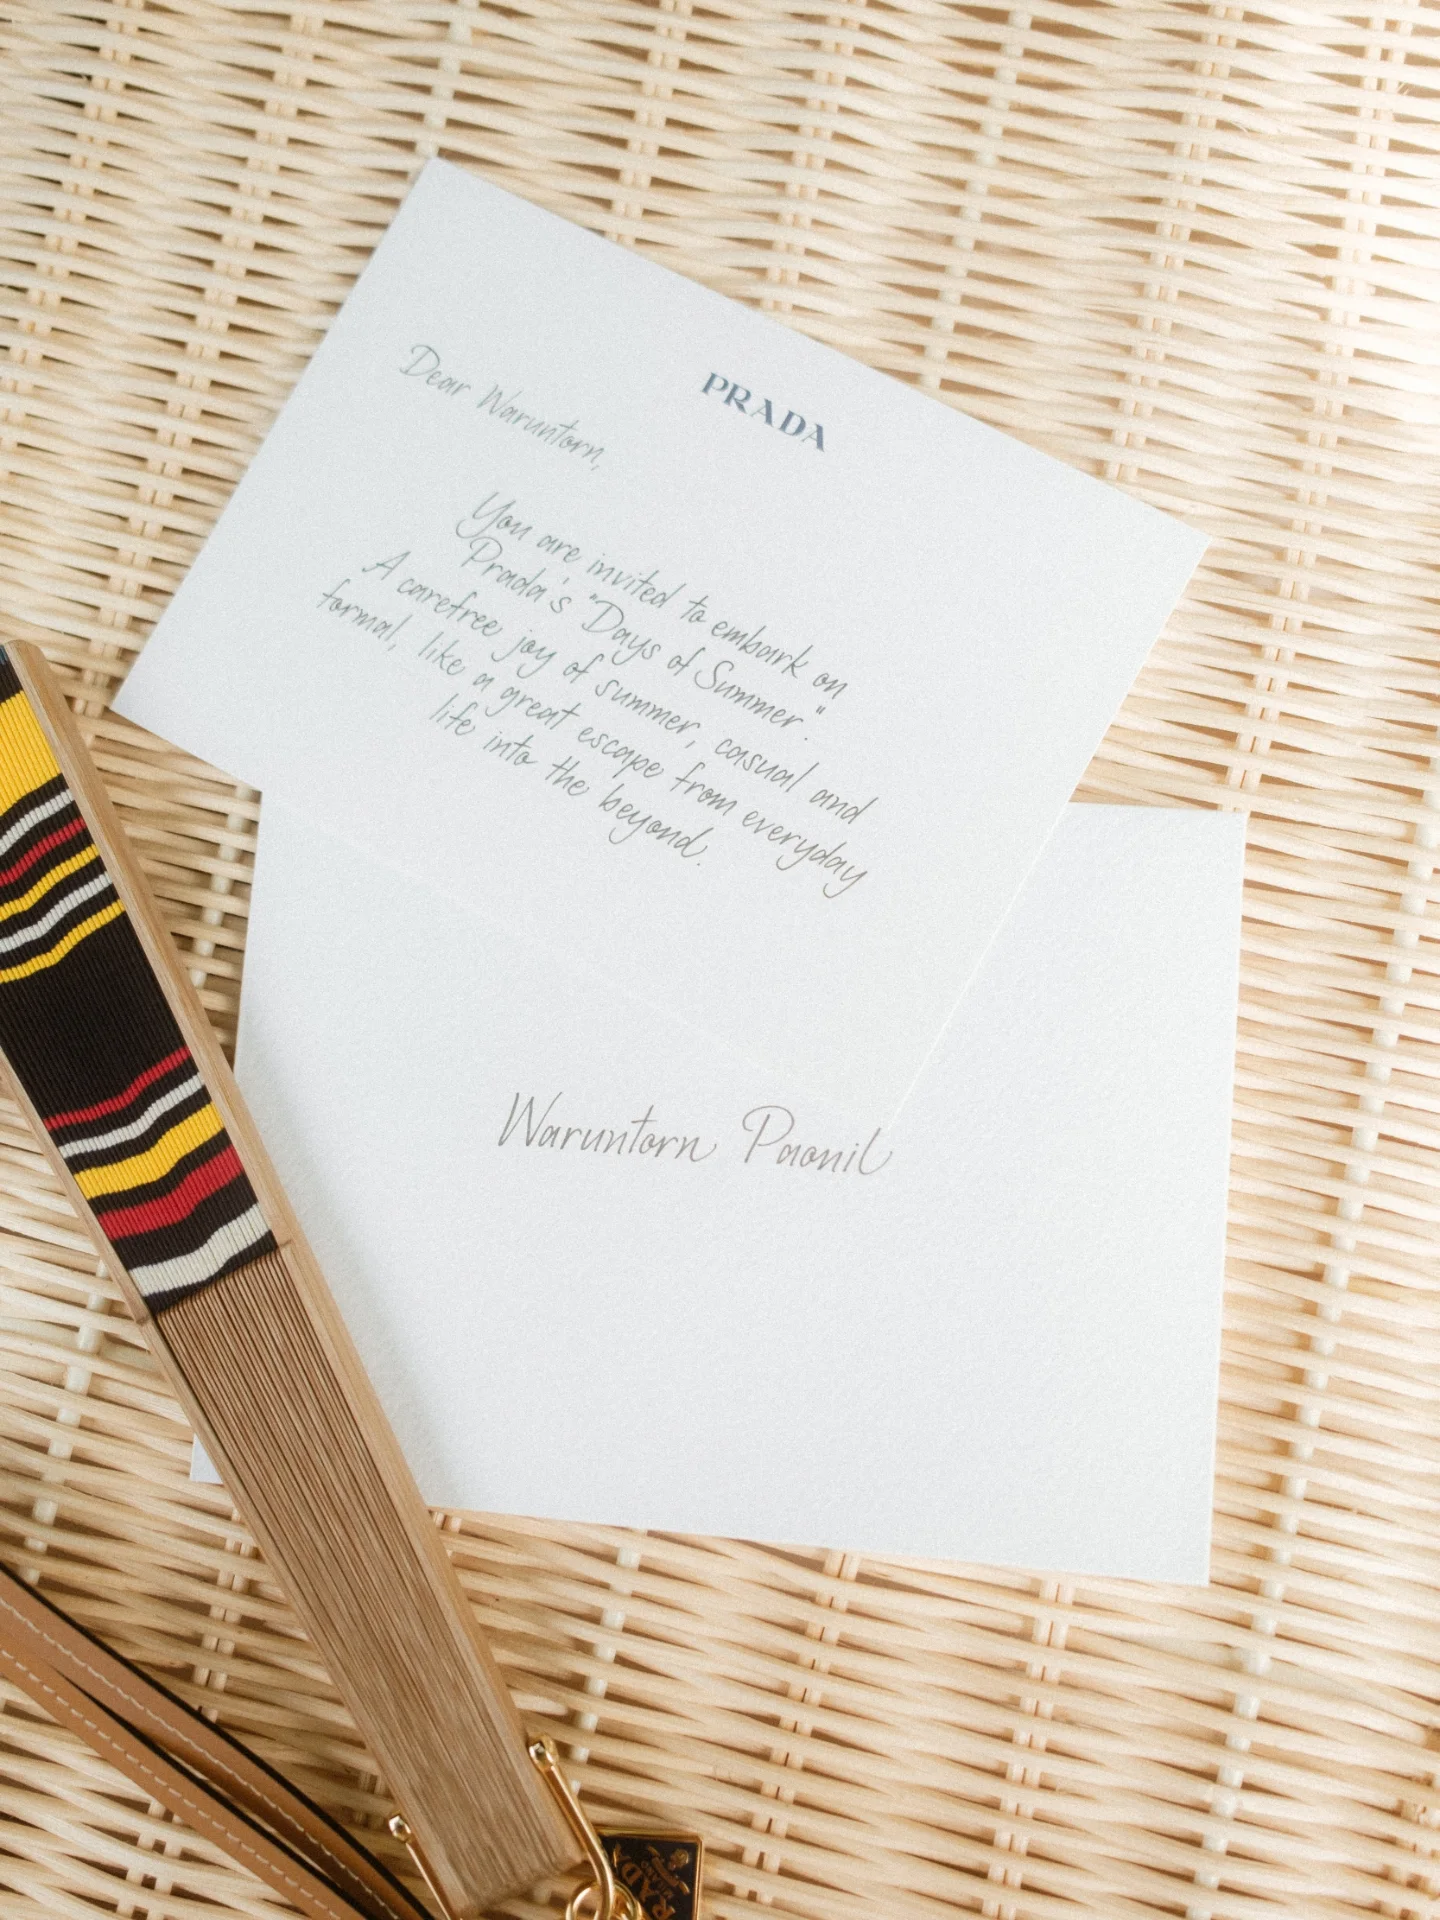 PRADA
Dear Waruntorn,
You are invited to embark on
Prada's "Days of Summer."
A carefree joy of summer, casual and
formal, like a great escape from everyday
life into the beyond.
Waruntorn Paonil
PRADA
MILANO